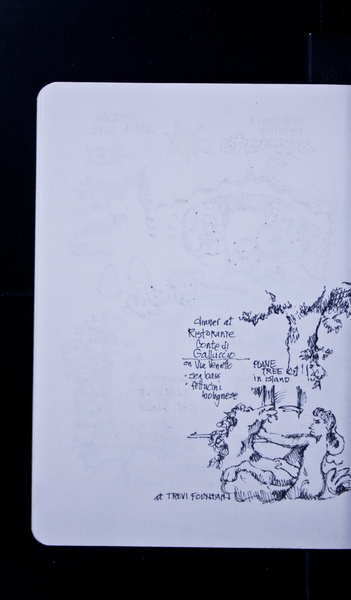 dinner at
Ristorante
Conte di
Galluccio
on Via Veneto
• sea bass
• fettucini
bolognese
PLANE
TREE
in island
at TREVI FOUNTAIN